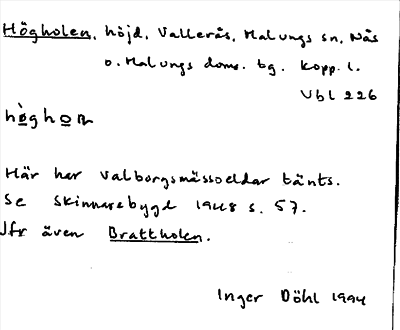 Högholen, höjd, Vallerås, Malungs sn, Nås
o. Malungs doms. bg. Kopp. l.
Vbl 226
Här har valborgsmässoeldar tänts.
Se Skinnarebygd 1948 s. 57.
Jfr även Brattholen.
Inger Döhl 1994